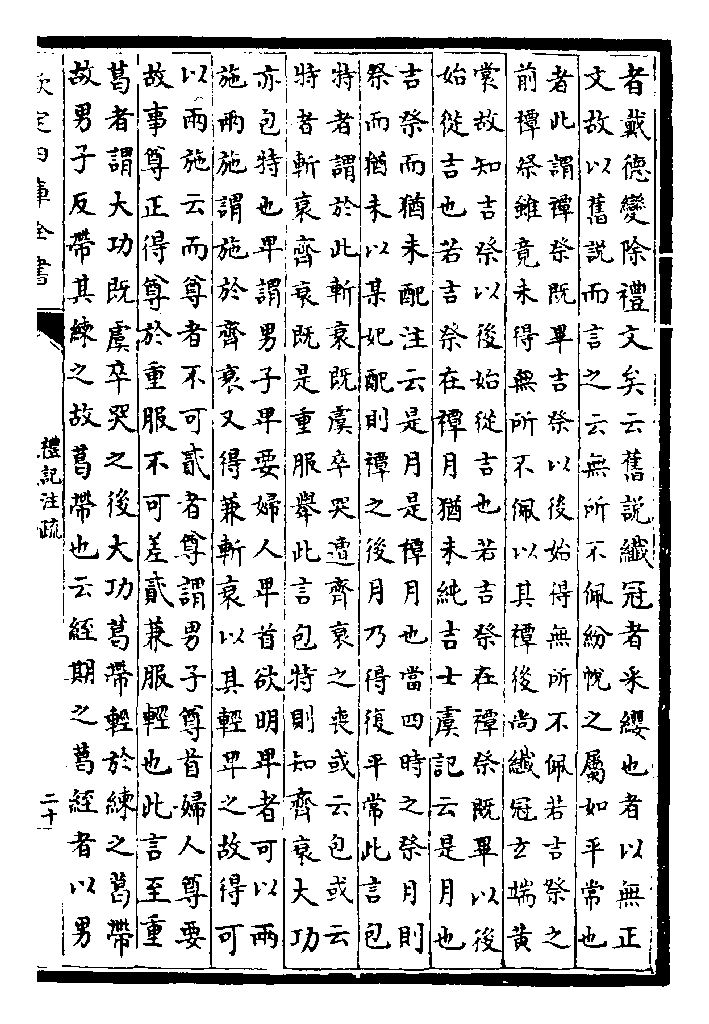 者戴德變除禮文矣云舊説纎冠者采纓也者以無正
文故以舊説而言之云無所不佩紛帨之屬如平常也
者此謂禫祭既畢吉祭以後始得無所不佩若吉祭之
前禫祭雖竟未得無所不佩以其禫後尚纎冠玄端黄
裳故知吉祭以後始從吉也若吉祭在禫祭既畢以後
始從吉也若吉祭在禫月猶未純吉士虞記云是月也
吉祭而猶未配注云是月是禫月也當四時之祭月則
祭而猶未以某妃配則禫之後月乃得復平常此言包
特者謂於此斬衰既虞卒哭遭齊衰之喪或云包或云
特者斬衰齊衰既是重服舉此言包特則知齊衰大功
亦包特也卑謂男子卑要婦人卑首欲明卑者可以兩
施兩施謂施於齊衰又得兼斬衰以其輕卑之故得可
以兩施云而尊者不可貳者尊謂男子尊首婦人尊要
故事尊正得尊於重服不可差貳兼服輕也此言至重
葛者謂大功既虞卒哭之後大功葛帶輕於練之葛帶
故男子反帶其練之故葛帶也云絰期之葛絰者以男
欽定四庫全書
禮記注疏
二十